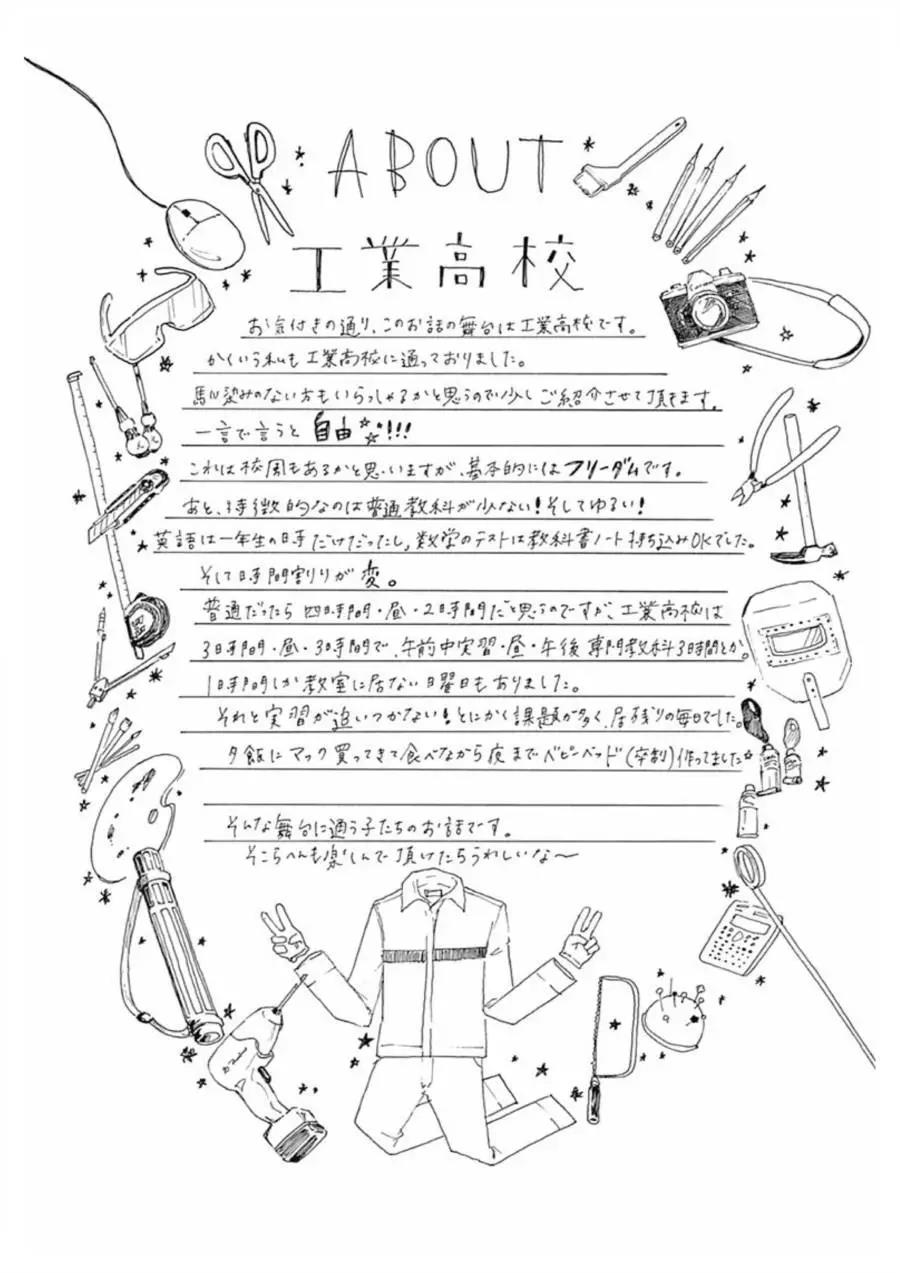 ABOUT
工業高校
お気付きの通り、このお話の舞台は工業高校です。
かくいう私も工業高校に通っておりました。
馴染みのない方もいらっしゃるかと思うので少しご紹介させて頂きます。
一言で言うと自由☆☆!!!
これは校風もあるかと思いますが、基本的にはフリーダムです。
あと、特徴的なのは普通教科が少ない!そしてゆるい!
英語は一年生の時だけだったし、数学のテストは教科書ノート持ち込みOKでした。
そして時間割りが変。
普通だったら四時間・昼・2時間だと思うのですが、工業高校は
3時間・昼・3時間で、午前中実習・昼・午後専門教科3時間とか。
1時間しか教室に居ない日曜日もありました。
それと実習が追いつかない!とにかく課題が多く、居残りの毎日でした。
夕飯にマック買ってきて食べながら夜までベビーベッド(卒制)作ってました☆
そんな舞台に通う子たちのお話です。
そこらへんも楽しんで頂けたらうれしいな〜